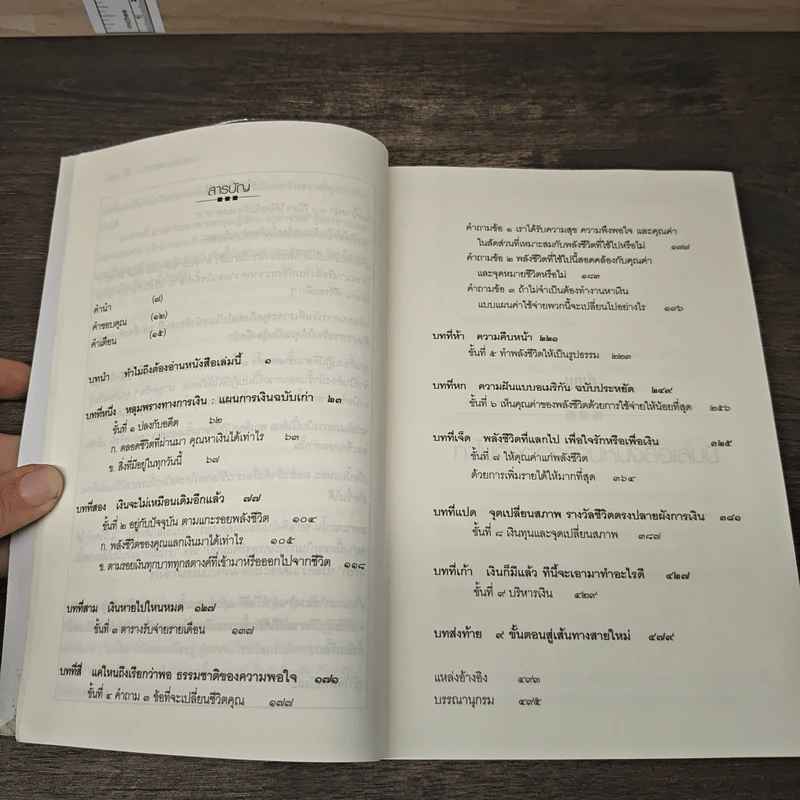 สารบัญ
คำนำ (๗)
คำขอบคุณ (๑๒)
คำเตือน (๑๕)
บทนำ ทำไมถึงต้องอ่านหนังสือเล่มนี้ ๑
บทที่หนึ่ง หลุมพรางทางการเงิน : แผนการเงินฉบับเก่า ๒๓
ขั้นที่ ๑ ปลงกับอดีต ๖๒
ก. ตลอดชีวิตที่ผ่านมา คุณหาเงินได้เท่าไร ๖๓
ข. สิ่งที่มีอยู่ในทุกวันนี้ ๖๗
บทที่สอง เงินจะไม่เหมือนเดิมอีกแล้ว ๗๗
ขั้นที่ ๒ อยู่กับปัจจุบัน ตามแกะรอยพลังชีวิต ๑๐๔
ก. พลังชีวิตของคุณแลกเงินมาได้เท่าไร ๑๐๕
ข. ตามรอยเงินทุกบาททุกสตางค์ที่เข้ามาหรือออกไปจากชีวิต ๑๑๘
บทที่สาม เงินหายไปไหนหมด ๑๒๗
ขั้นที่ ๓ ตารางรับจ่ายรายเดือน ๑๓๗
บทที่สี่ แค่ไหนถึงเรียกว่าพอ ธรรมชาติของความพอใจ ๑๗๑
ขั้นที่ ๔ คำถาม ๓ ข้อที่จะเปลี่ยนชีวิตคุณ ๑๗๗
คำถามข้อ ๑ เราได้รับความสุข ความพึงพอใจ และคุณค่า
ในสัดส่วนที่เหมาะสมกับพลังชีวิตที่ใช้ไปหรือไม่ ๑๗๗
คำถามข้อ ๒ พลังชีวิตที่ใช้ไปนี้สอดคล้องกับคุณค่า
และจุดหมายชีวิตหรือไม่ ๑๘๓
คำถามข้อ ๓ ถ้าไม่จำเป็นต้องทำงานหาเงิน
แบบแผนค่าใช้จ่ายพวกนี้จะเปลี่ยนไปอย่างไร ๑๙๖
บทที่ห้า ความคืบหน้า ๒๒๑
ขั้นที่ ๕ ทำพลังชีวิตให้เป็นรูปธรรม ๒๒๓
บทที่หก ความฝันแบบอเมริกัน ฉบับประหยัด ๒๔๙
ขั้นที่ ๖ เห็นคุณค่าของพลังชีวิตด้วยการใช้จ่ายให้น้อยที่สุด ๒๕๖
บทที่เจ็ด พลังชีวิตที่แลกไป เพื่อใจรักหรือเพื่อเงิน ๓๒๕
ขั้นที่ ๗ ให้คุณค่าแก่พลังชีวิต
ด้วยการเพิ่มรายได้ให้มากที่สุด ๓๖๔
บทที่แปด จุดเปลี่ยนสภาพ รางวัลชีวิตตรงปลายผังการเงิน ๓๘๑
ขั้นที่ ๘ เงินทุนและจุดเปลี่ยนสภาพ ๓๘๗
บทที่เก้า เงินก็มีแล้ว ทีนี้จะเอามาทำอะไรดี ๔๒๗
ขั้นที่ ๙ บริหารเงิน ๔๒๙
บทส่งท้าย ๙ ขั้นตอนสู่เส้นทางสายใหม่ ๔๗๙
แหล่งอ้างอิง ๔๙๓
บรรณานุกรม ๔๙๕